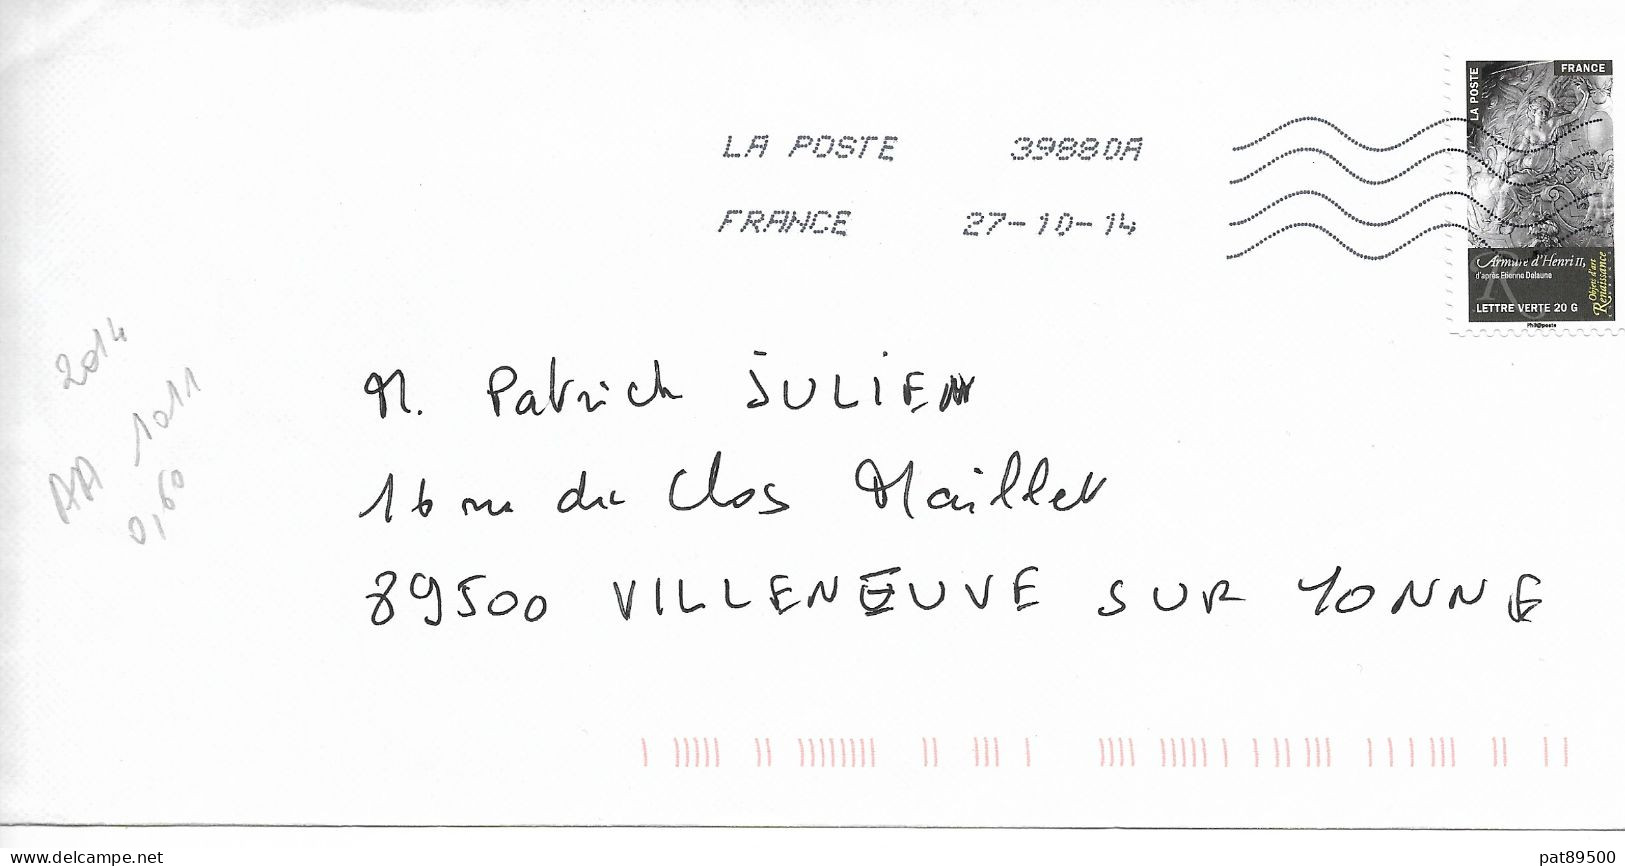 LA POSTE 39880A
FRANCE 27-10-14
LA POSTE
FRANCE
Armure d'Henri II,
d'après Etienne Delaune
LETTRE VERTE 20 G
Objets d'art
Renaissance
Phil@poste
2014
AA 1011
0,60
M. Patrick JULIEN
16 rue du Clos Maillet
89500 VILLENEUVE SUR YONNE
www.delcampe.net
pat89500